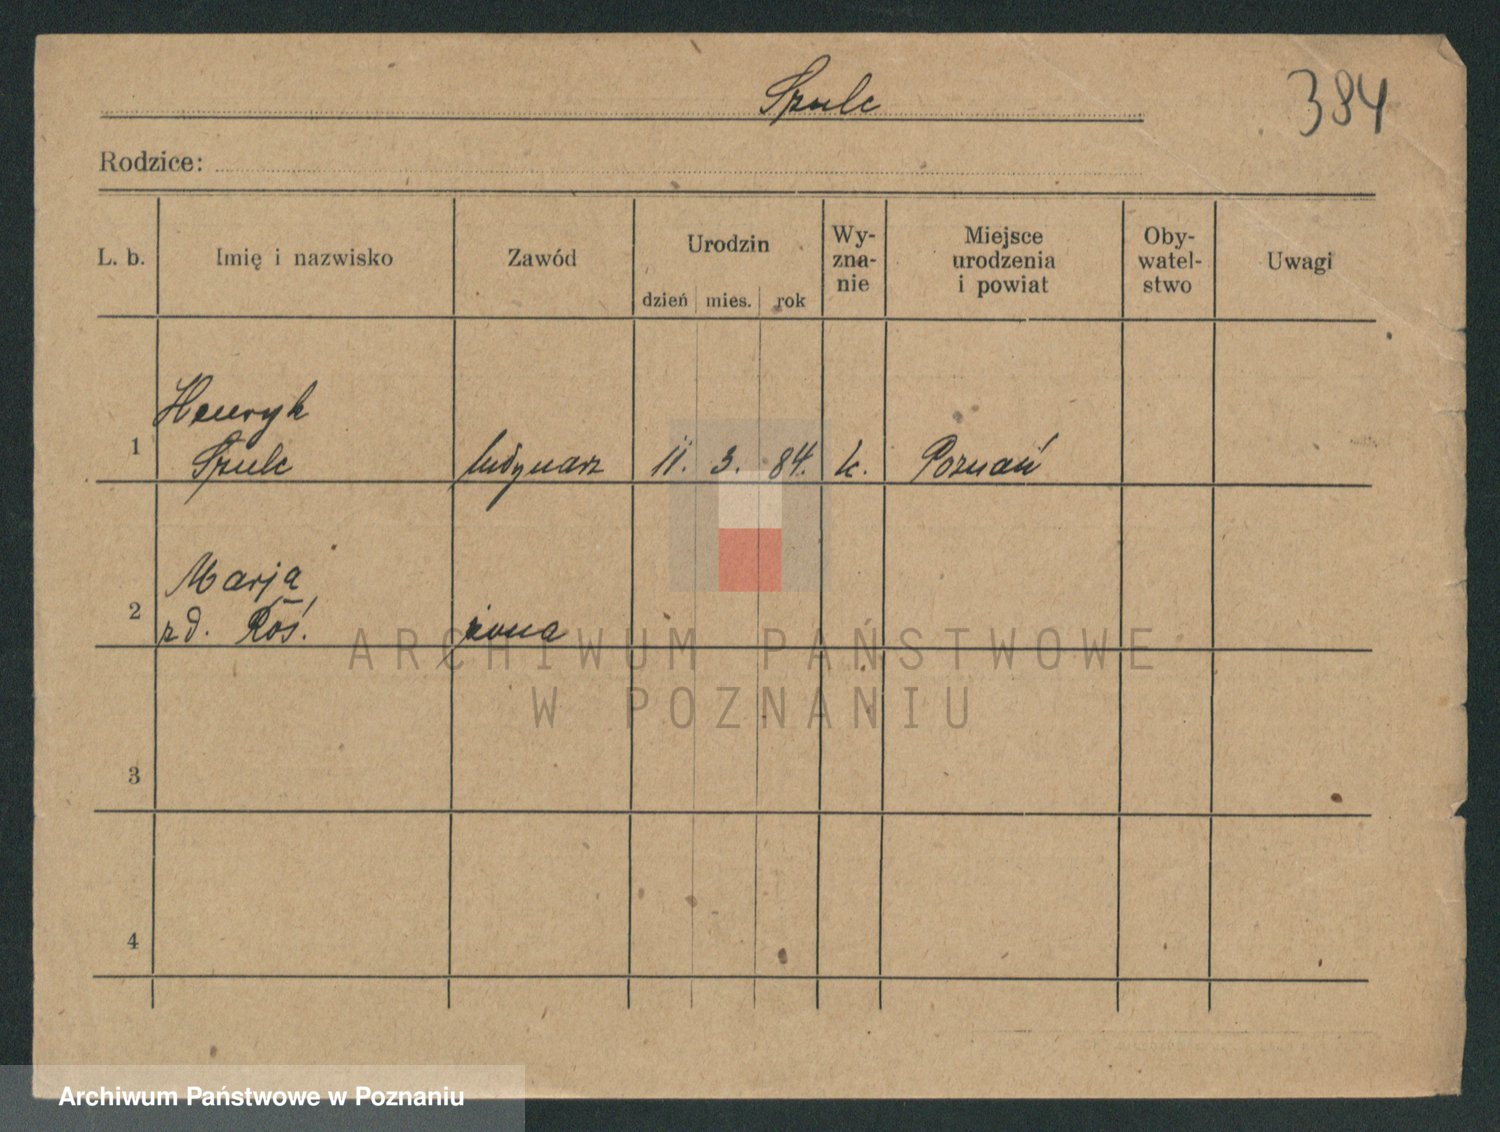 Szulc
384
Rodzice:
L. b. Imię i nazwisko Zawód Urodzin dzień mies. rok Wy-zna-nie Miejsce urodzenia i powiat Oby-watel-stwo Uwagi
Henryk
1 Szulc młynarz 11. 3. 84. k. Poznań
Marja
2 zd. Roś. żona
3
4
ARCHIWUM PAŃSTWOWE
W POZNANIU
Archiwum Państwowe w Poznaniu